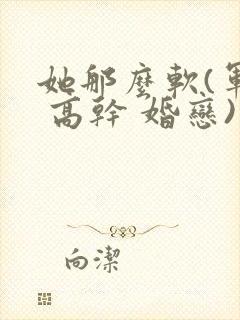 她那麼軟(軍
高幹 婚戀)
向潔